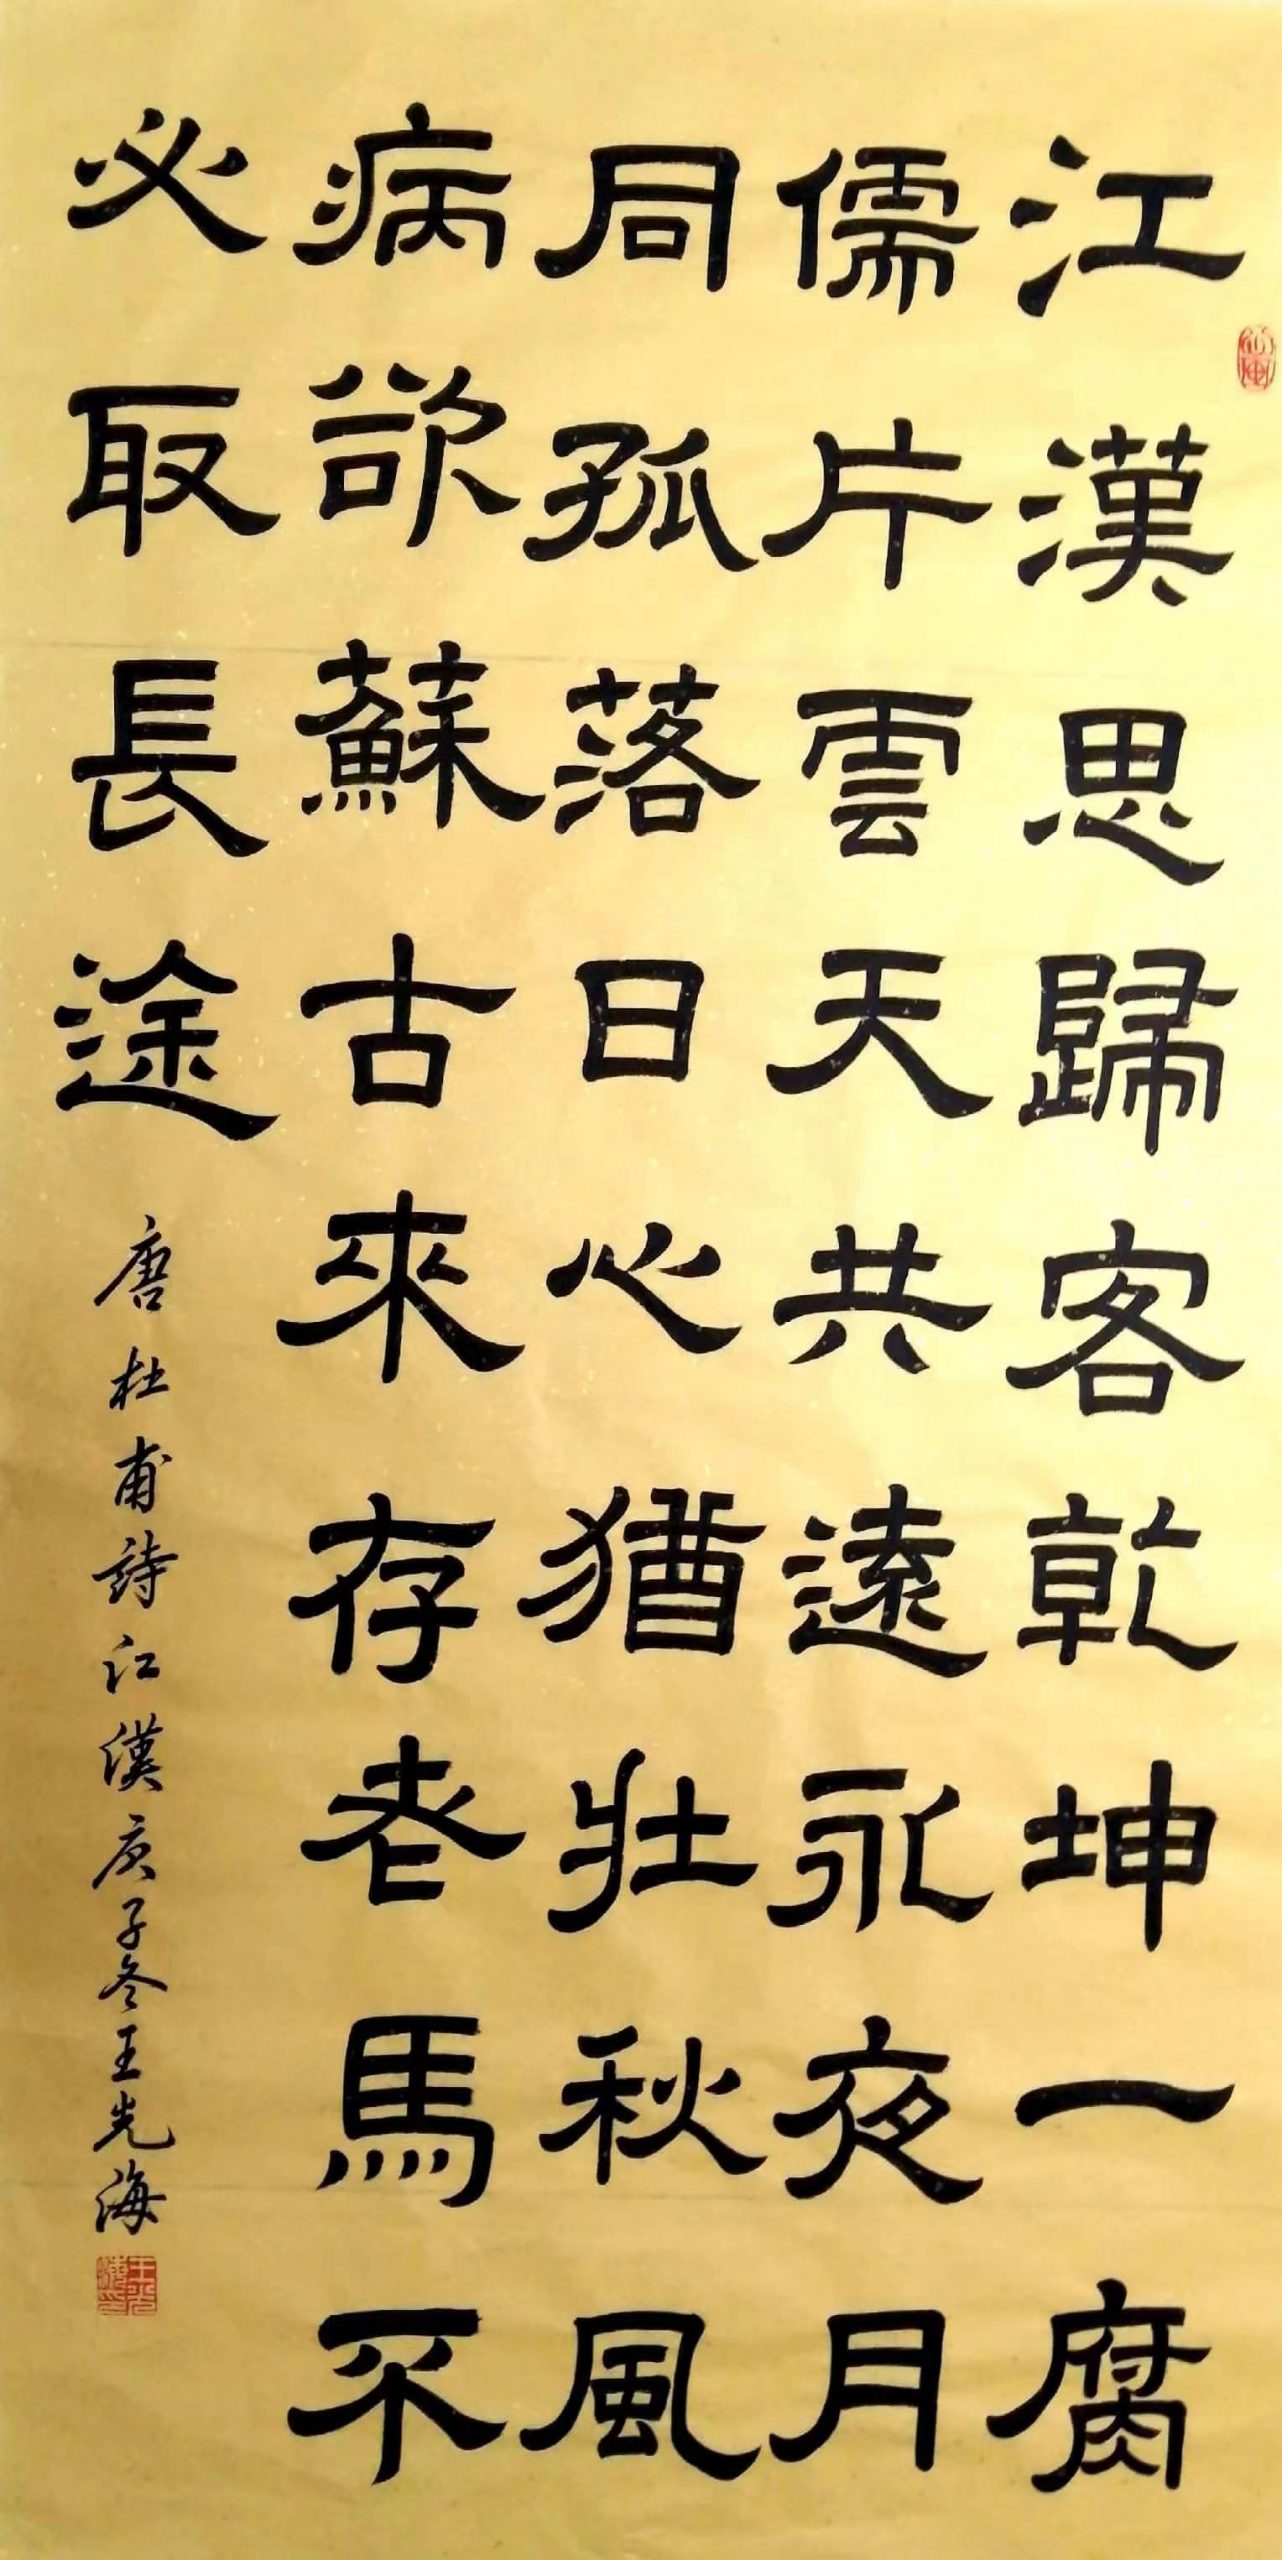 江漢思歸客乾坤一腐
儒片雲天共遠永夜月
同孤落日心猶壯秋風
病欲蘇古來存老馬不
必取長途
唐杜甫詩江漢庚子冬王先海